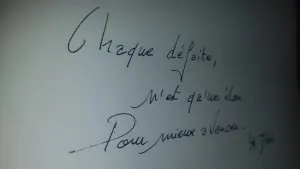 Chaque défaite,
n'est qu'un élan
Pour mieux avancer.